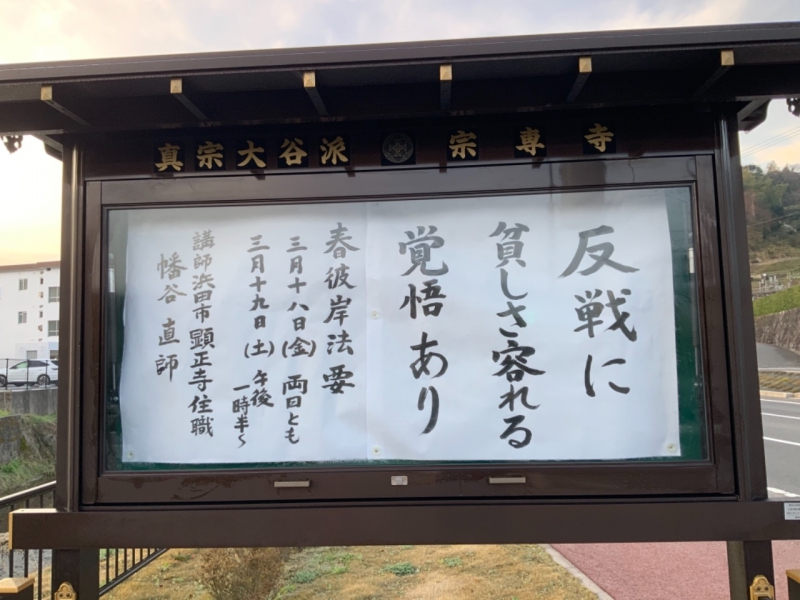 真宗大谷派 宗専寺
反戦に
貧しさ容れる
覚悟あり
春彼岸法要
三月十八日(金) 両日とも
三月十九日(土) 午後
一時半〜
講師浜田市 顕正寺住職
幡谷 直師